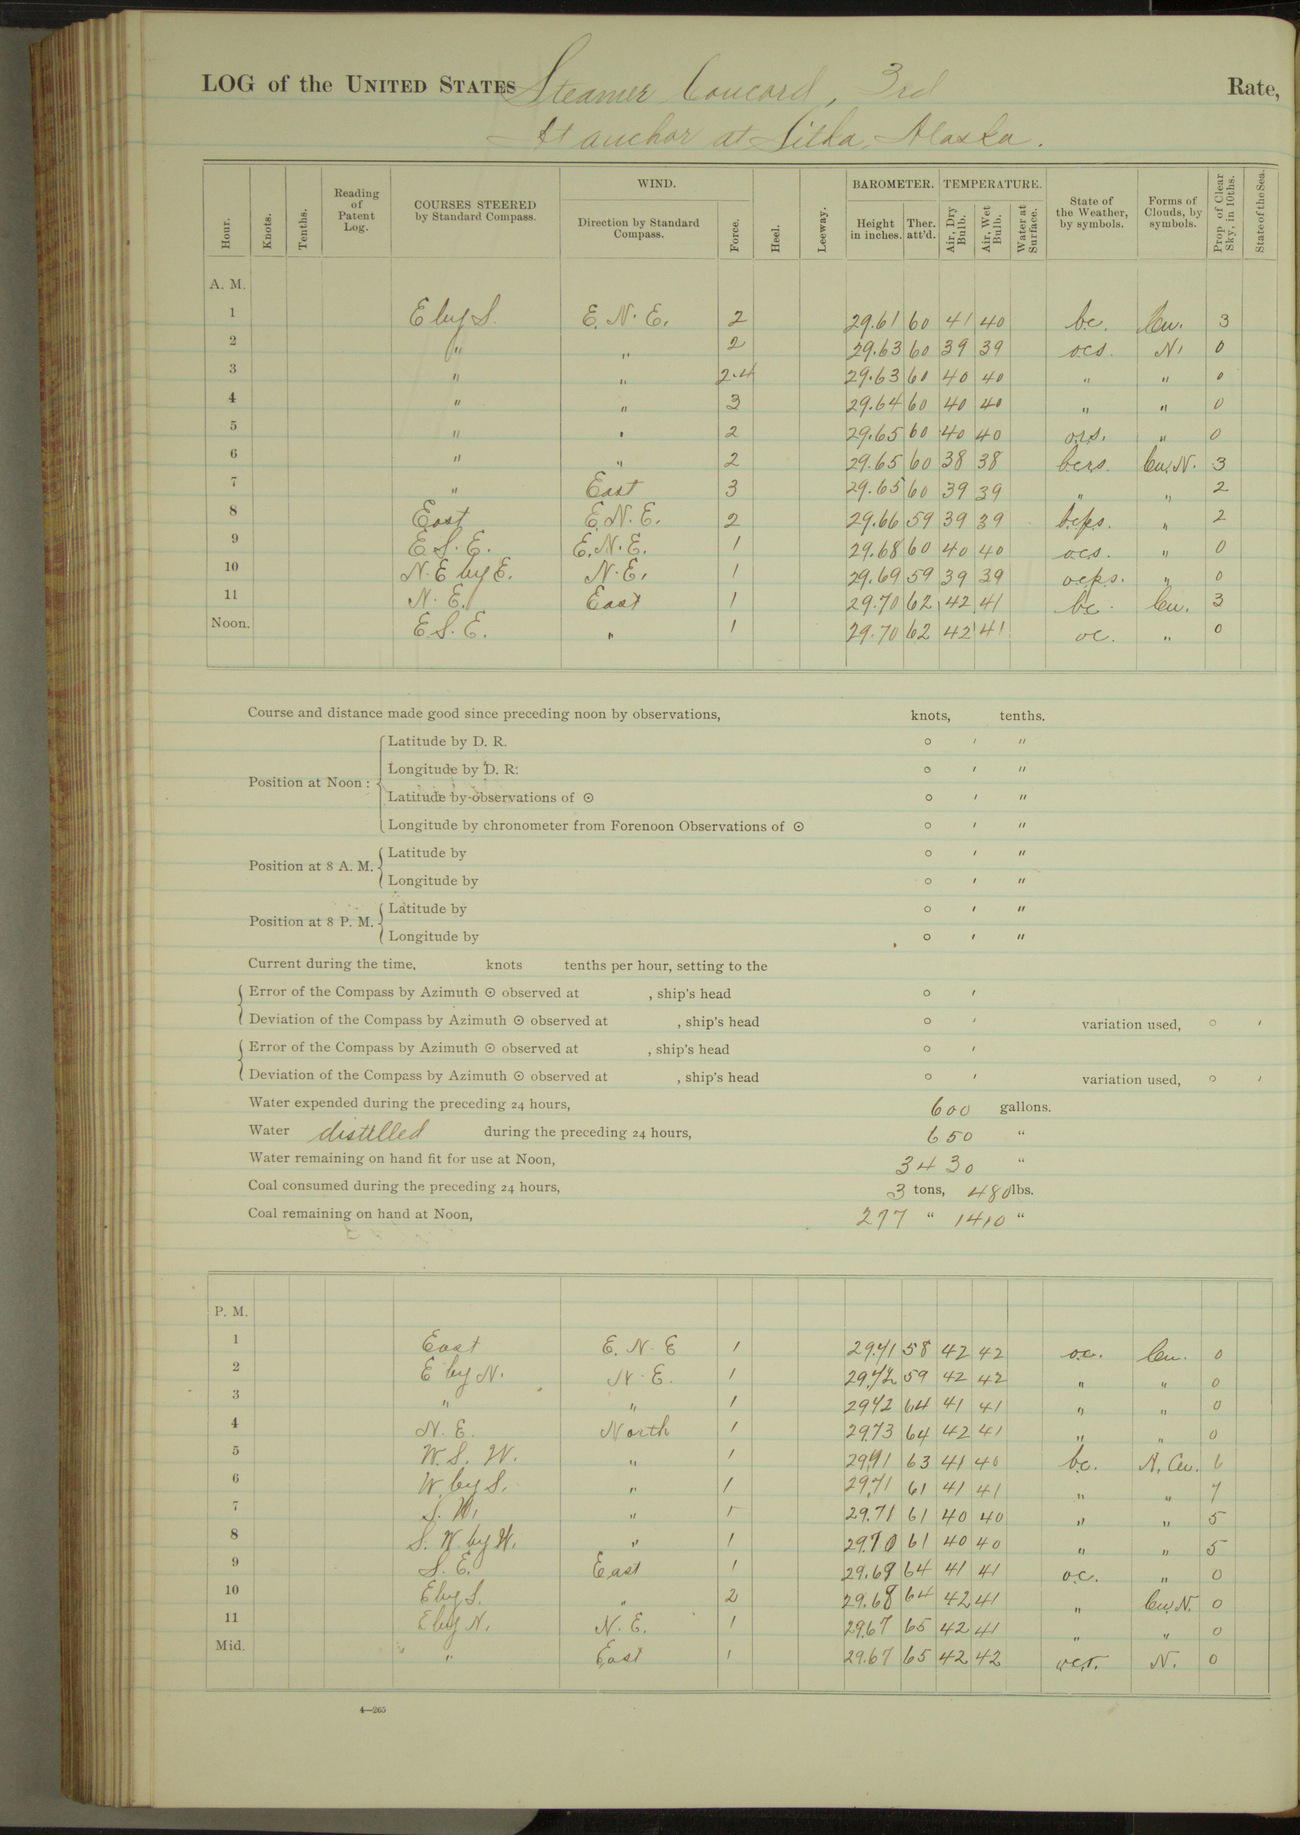 LOG of the UNITED STATES Steamer Concord, 3rd Rate,
At anchor at Sitka, Alaska.
Hour. Knots. Tenths. Reading of Patent Log. COURSES STEERED by Standard Compass. WIND. Direction by Standard Compass. Force. Heel. Leeway. BAROMETER. Height in inches. Ther. att'd. TEMPERATURE. Air, Dry Bulb. Air, Wet Bulb. Water at Surface. State of the Weather, by symbols. Forms of Clouds, by symbols. Prop of Clear Sky, in 10ths. State of the Sea.
A. M.
1 E by S. E. N. E. 2 29.61 60 41 40 bc. Cu. 3
2 " " 2 29.63 60 39 39 ocs. N. 0
3 " " 2-4 29.63 60 40 40 " " 0
4 " " 3 29.64 60 40 40 " " 0
5 " " 2 29.65 60 40 40 ors. " 0
6 " " 2 29.65 60 38 38 bcrs. Cu. N. 3
7 " East 3 29.65 60 39 39 " " 2
8 East E. N. E. 2 29.66 59 39 39 bcps. " 2
9 E. S. E. E. N. E. 1 29.68 60 40 40 ocs. " 0
10 N. E by E. N. E. 1 29.69 59 39 39 ocps. " 0
11 N. E. East 1 29.70 62 42 41 bc. Cu. 3
Noon. E. S. E. " 1 29.70 62 42 41 oc. " 0
Course and distance made good since preceding noon by observations, knots, tenths.
Position at Noon : Latitude by D. R. ° ′ ″
Longitude by D. R. ° ′ ″
Latitude by observations of ☉ ° ′ ″
Longitude by chronometer from Forenoon Observations of ☉ ° ′ ″
Position at 8 A. M. Latitude by ° ′ ″
Longitude by ° ′ ″
Position at 8 P. M. Latitude by ° ′ ″
Longitude by ° ′ ″
Current during the time, knots tenths per hour, setting to the
Error of the Compass by Azimuth ☉ observed at , ship's head ° ′
Deviation of the Compass by Azimuth ☉ observed at , ship's head ° ′ variation used, ° ′
Error of the Compass by Azimuth ☉ observed at , ship's head ° ′
Deviation of the Compass by Azimuth ☉ observed at , ship's head ° ′ variation used, ° ′
Water expended during the preceding 24 hours, 600 gallons.
Water distilled during the preceding 24 hours, 650 "
Water remaining on hand fit for use at Noon, 3430 "
Coal consumed during the preceding 24 hours, 3 tons, 480 lbs.
Coal remaining on hand at Noon, 277 " 1410 "
P. M.
1 East E. N. E 1 29.71 58 42 42 oc. Cu. 0
2 E by N. N. E. 1 29.72 59 42 42 " " 0
3 " " 1 29.72 64 41 41 " " 0
4 N. E. North 1 29.73 64 42 41 " " 0
5 W. S. W. " 1 29.71 63 41 40 bc. A. Cu. 6
6 W. by S. " 1 29.71 61 41 41 " " 7
7 S. W. " 1 29.71 61 40 40 " " 5
8 S. W. by W. " 1 29.70 61 40 40 " " 5
9 S. E. East 1 29.69 64 41 41 oc. " 0
10 E by S. " 2 29.68 64 42 41 " Cu. N. 0
11 E by N. N. E. 1 29.67 65 42 41 " " 0
Mid. " East 1 29.67 65 42 42 N. 0
4—265